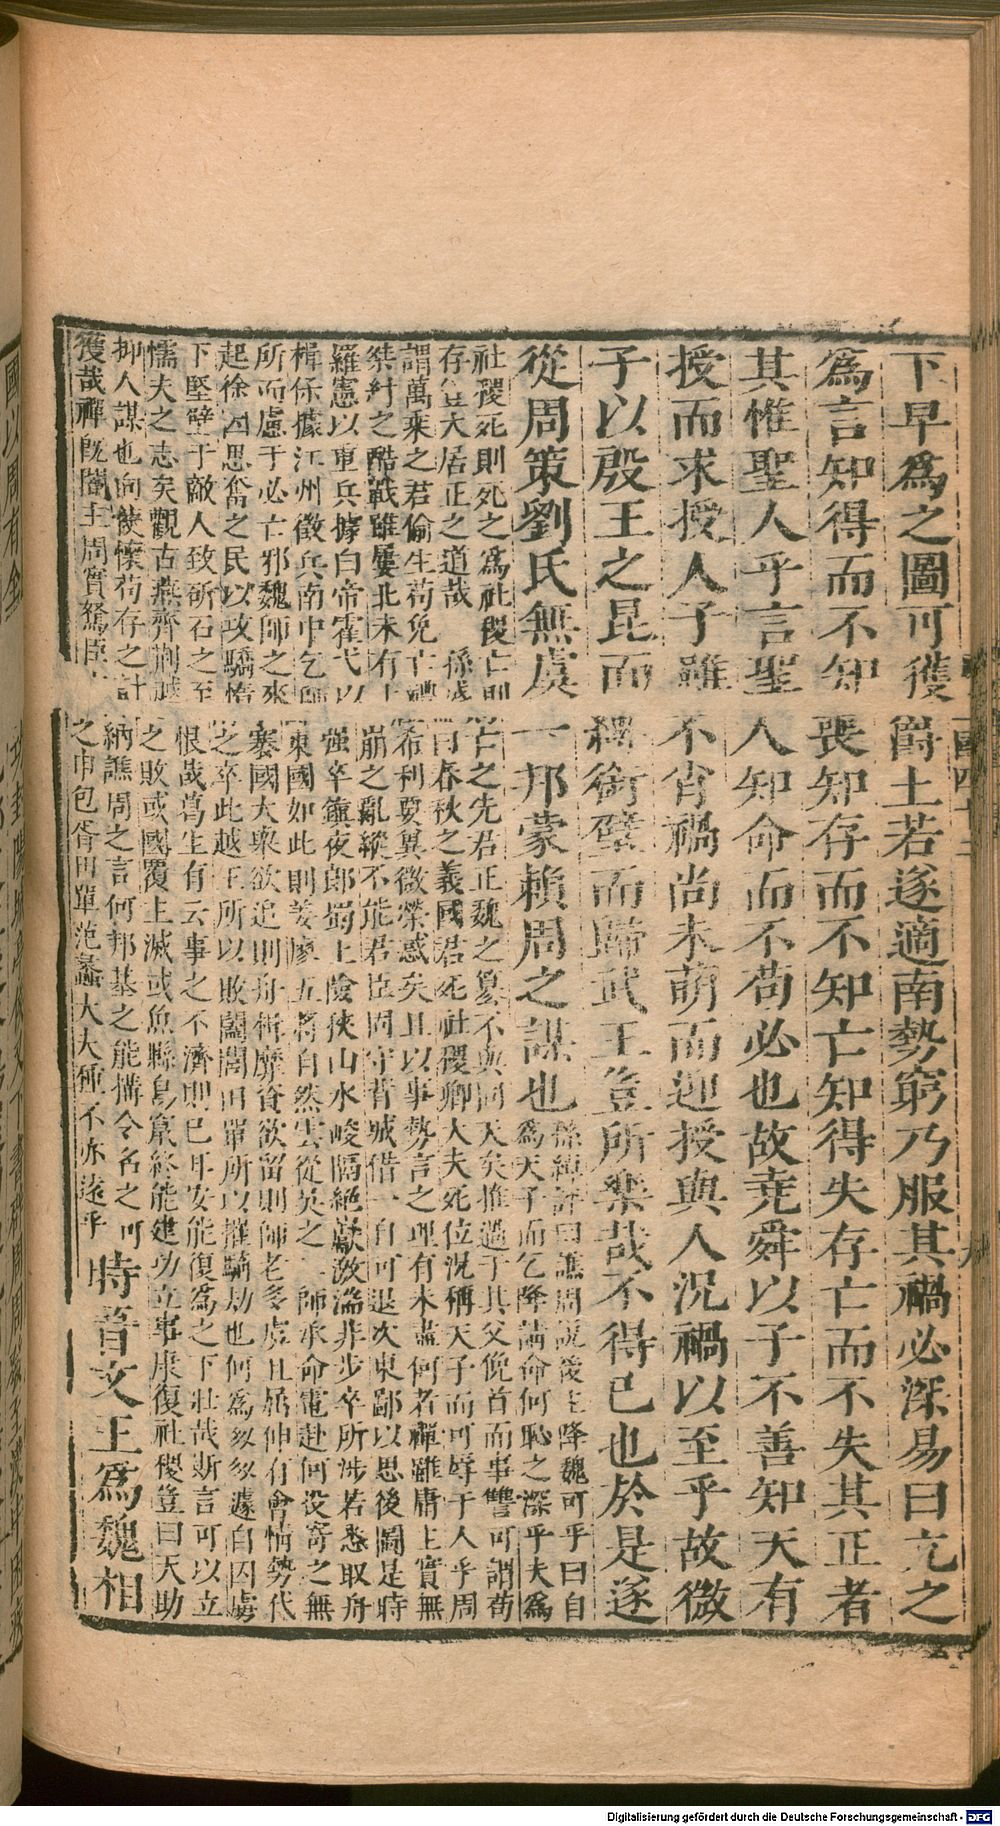 下早為之圖可獲爵土若遂適南勢窮乃服其禍必深易曰亢之
為言知得而不知喪知存而不知亡知得失存亡而不失其正者
其惟聖人乎言聖人知命而不苟必也故堯舜以子不善知天有
授而求授人子雖不肖禍尚未萌而迎授與人況禍以至乎故微
子以殷王之昆面縛銜璧而歸武王豈所樂哉不得已也於是遂
從周策劉氏無虞一邦蒙賴周之謀也
孫綽評曰譙周說後主降魏可乎曰自
為天子而乞降請命何恥之深乎夫為
社稷死則死之為社稷亡則亡之先君正魏之篡不與同天矣推過于其父俛首而事讎可謂苟
存豈大居正之道哉 孫盛曰春秋之義國君死社稷卿大夫死位況稱天子而可辱于人乎周
謂萬乘之君偷生苟免亡禮希利要冀微榮惑矣且以事勢言之理有未盡何者禪雖庸主實無
桀紂之酷戰雖屢北未有土崩之亂縱不能君臣固守背城借一自可退次東鄙以思後圖是時
羅憲以重兵據白帝霍弋以强卒鎮夜郎蜀土險狹山水峻隔絕巘激湍非步卒所涉若悉取舟
楫保據江州徵兵南中乞師東國如此則姜廖五將自然雲從吳之三師承命電赴何投寄之無
所而慮于必亡邪魏師之來褰國大衆欲追則舟楫靡資欲留則師老多虞且屈伸有會情勢代
起徐因思奮之民以攻驕惰之卒此越王所以敗闔閭田單所以摧騎劫也何為匆匆遽自囚虜
下堅壁于敵人致斫石之至恨哉葛生有云事之不濟則已耳安能復為之下壯哉斯言可以立
懦夫之志矣觀古燕齊荊越之敗或國覆主滅或魚縣鳥竄終能建功立事康復社稷豈曰天助
抑人謀也向使懷苟存之計納譙周之言何邦基之能構令名之可
獲哉禪旣闇主周實駑臣方之申包胥田單范蠡大夫種不亦遠乎
時晉文王為魏相
Digitalisierung gefördert durch die Deutsche Forschungsgemeinschaft - DFG